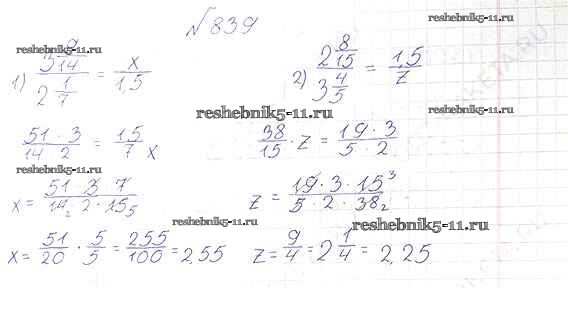 №839
reshebnik5-11.ru
1) 3 9/14 / 2 1/7 = x / 1,5
reshebnik5-11.ru
2) 2 8/15 / 3 4/5 = 1,5 / z
reshebnik5-11.ru
reshebnik5-11.ru
reshebnik5-11.ru
51 · 3 / 14 · 2 = 15 / 7 x
38/15 · z = 19 · 3 / 5 · 2
reshebnik5-11.ru
x = 51 · 3 · 7 / 14 2 · 2 · 15 5
z = 19 · 3 · 15 3 / 5 · 2 · 38 2
reshebnik5-11.ru
reshebnik5-11.ru
x = 51/20 · 5/5 = 255/100 = 2,55
z = 9/4 = 2 1/4 = 2,25